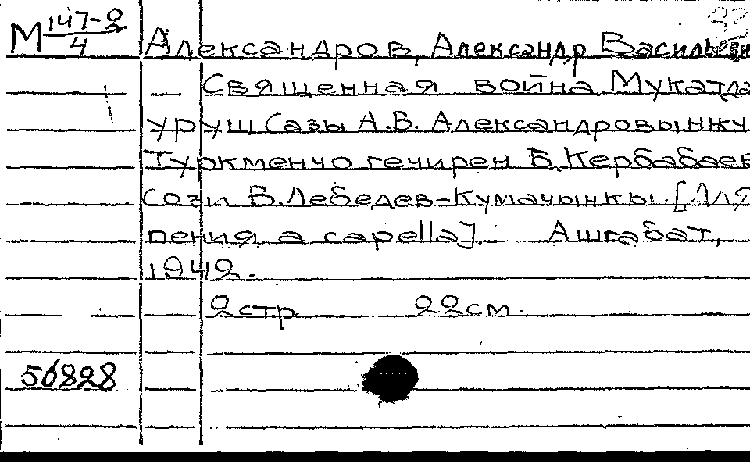 М 147-2/4
Александров, Александр Василье
Священная война Мукатда
уруш Сазы А.В. Александровынжу
Туркменчо гечирен Б. Кербабаев
Сози В. Лебедев-Кумачынкы. [Для
пения a capella]. Ашгабат,
1942.
2 стр 22 см.
56828